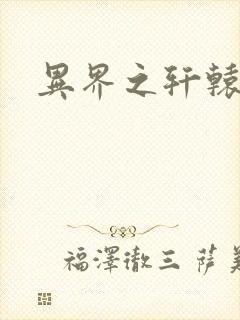 異界之軒轅
福澤徹三 薩美